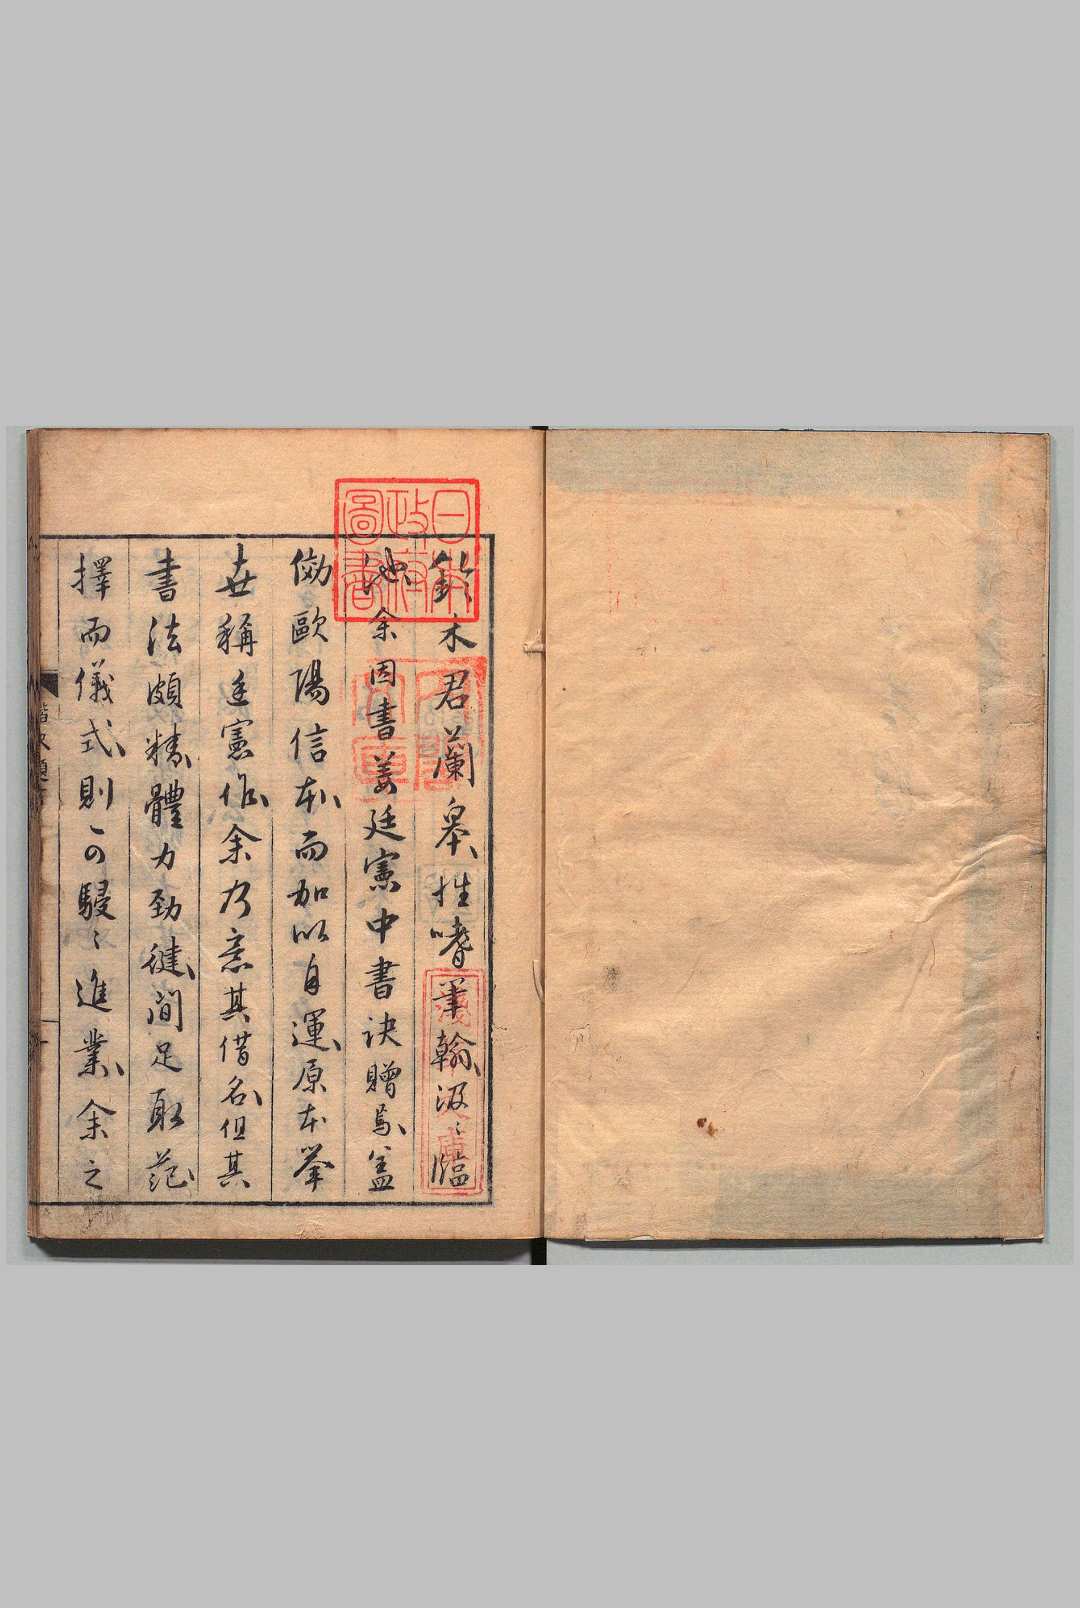 鈴木君蘭皋、性嗜筆翰、汲〻臨
池、余因書姜廷憲中書訣贈焉、蓋
倣歐陽信本、而加以自運、原本挙
世稱廷憲作、余乃意其借名、但其
書法頗精、體力勁健、間足取范、
擇而儀式、則可駸〻進業、余之
日本政府圖書